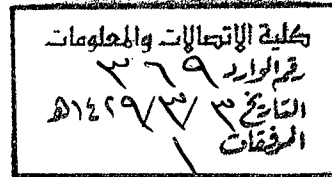 كلية الاتصالات والمعلومات
رقم الوارد ٣٦٩
التاريخ ٣/٣/١٤٢٩هـ
المرفقات ١